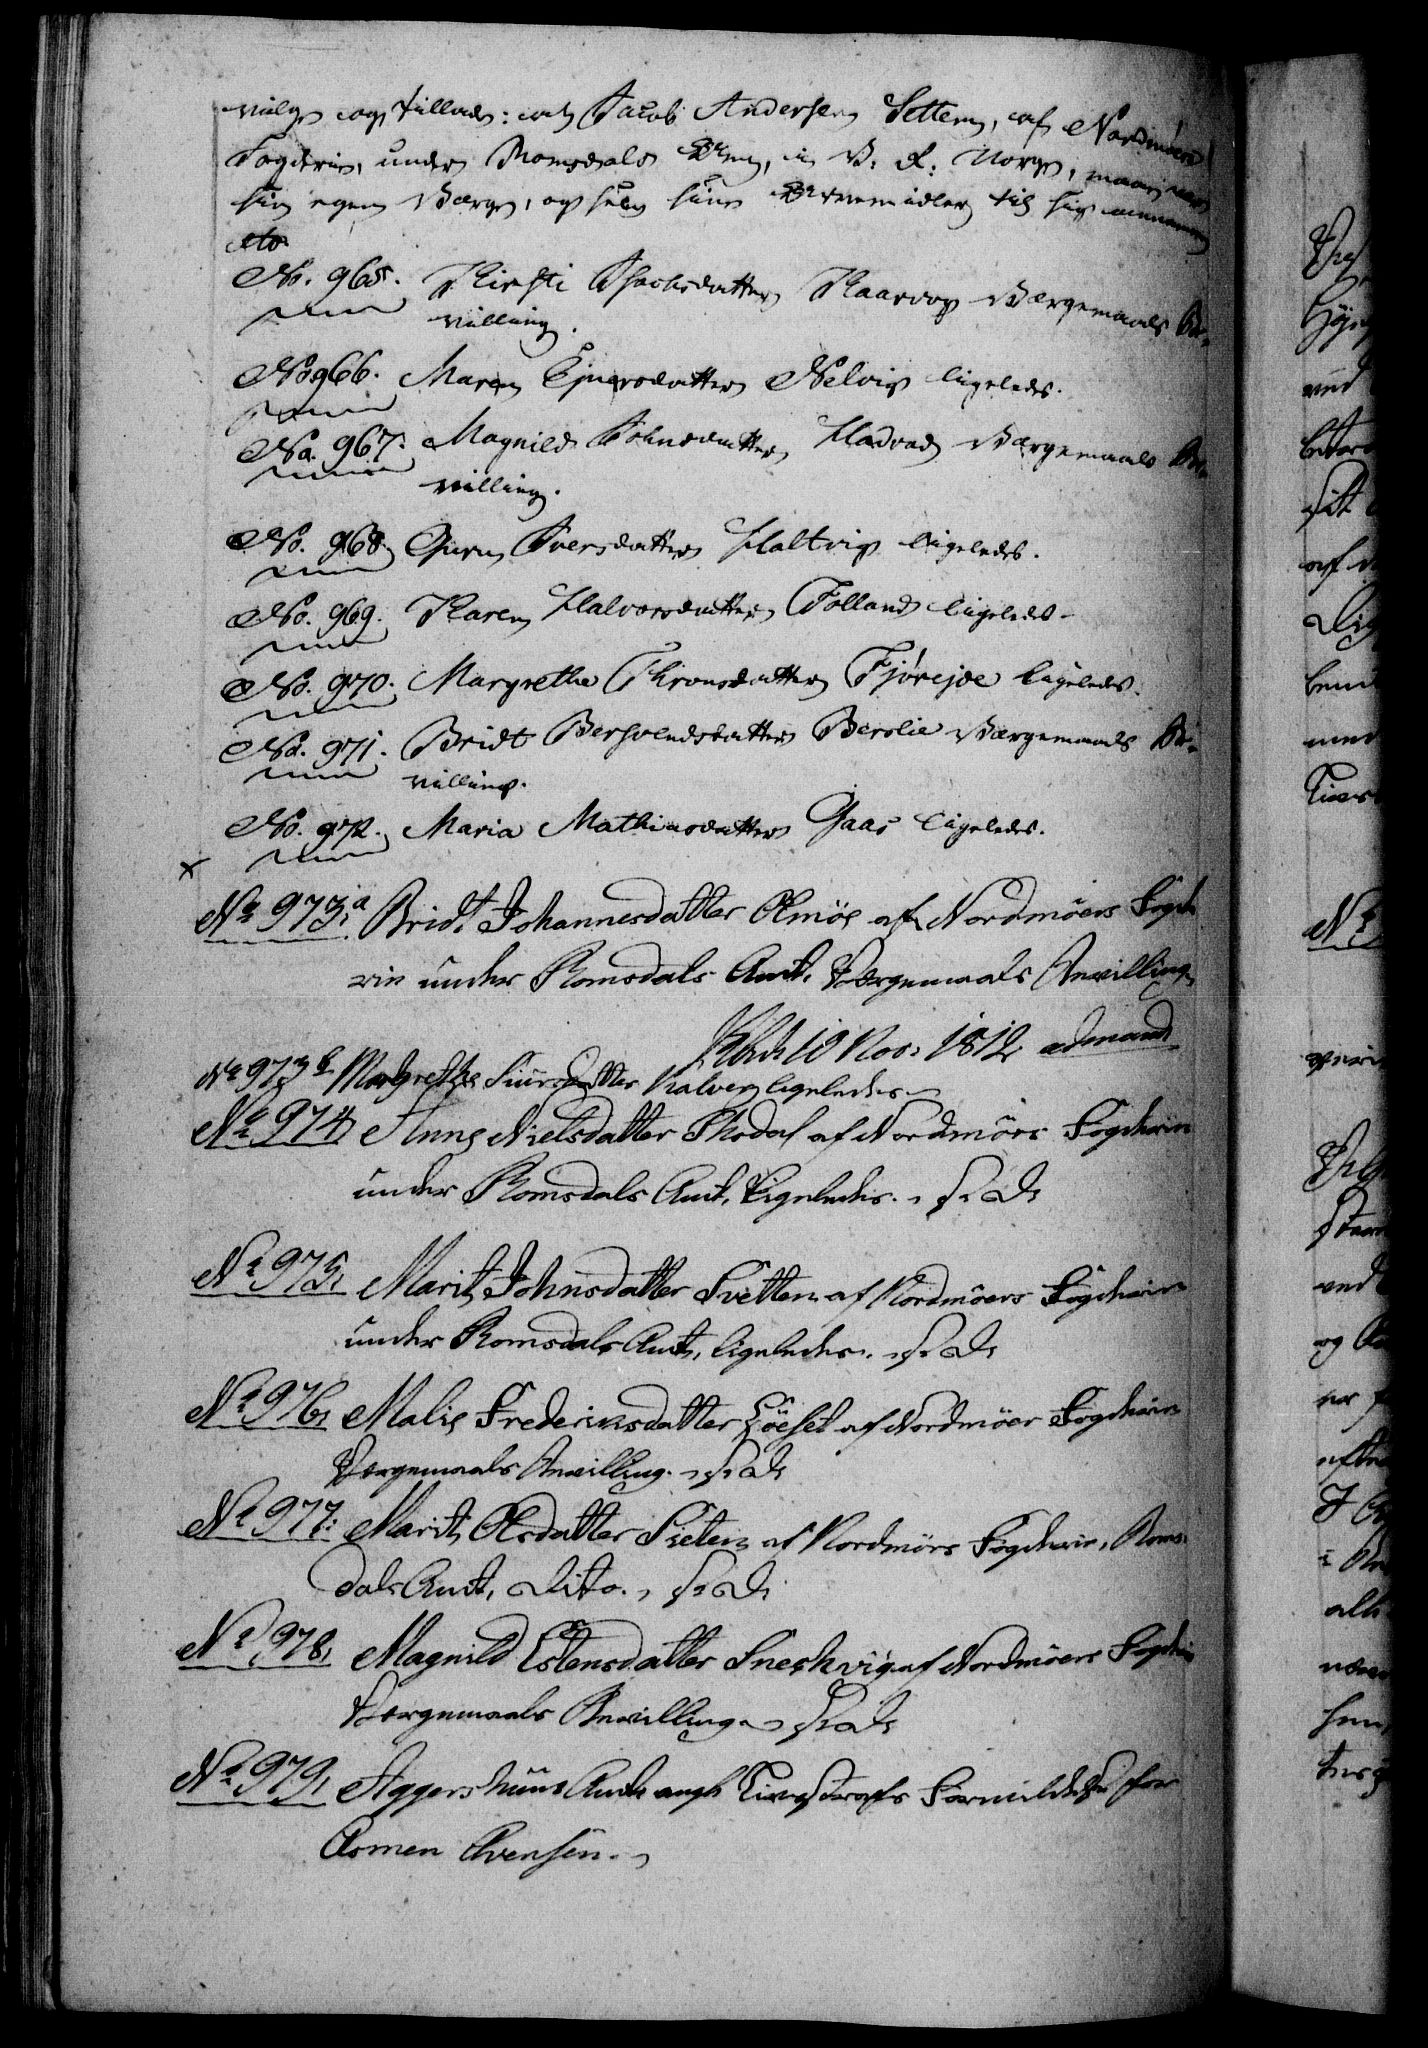 vilge og tillade: at Jacob Andersen Settem, af Nordmøers
Fogderie, under Romsdals Amt, i V. R. Norge, maae være
sin egen Værge, og selv sine Arvemidler til sig annamme
etc.
No. 965. Kirsti Jsachsdatter Kaarvog Værgemaals Be-
villing.
No 966. Maren Ejnersdatter Nelvig ligeledes.
No. 967. Magnild Johnsdatter Hadvad Værgemaals Be-
villing.
No. 968. Guru Iversdatter Haltvig ligeledes.
No. 969. Karen Halvorsdatter Folland ligeledes.
No. 970. Margrethe Thronsdatter Fjørejde ligeledes.
No. 971. Bridt Bersvendsdatter Berslie Værgemaals Be-
villing.
No. 972. Maria Mathiasdatter Gaas ligeledes.
x
No 973.a Brid. Johannesdatter Olmøe af Nordmøers Fogde
rie under Romsdals Amt, Værgemaals Bevilling
Kbh. d. 10 Nov. 1812 ad mand.
No 973 b Margrethe Siursdatter Kalvey ligeledes
No 974, Anne Nielsdatter Skodal af Nordmörs Fogderie
under Romsdals Amt, Ligeledes. s: D:
No 975, Marit Johnsdatter Svetten af Nordmöers Fogderie
under Romsdals Amt, ligeledes. s: D:
No 976, Malie Frederiksdatter Löeset af Nordmöer Fogderie
Værgemaals Bevilling. s: D:
No 977: Marit Olsdatter Sieten af Nordmörs Fogderie, Roms-
dals Amt, Dito. s: D:
No 978, Magnild Estensdatter Sneskvig af Nordmöers Fogderie
Værgemaals Bevilling s: D:
No 979, Aggershuus Amt angl Livsstrafs Formildelse for
Asmen Evensen.